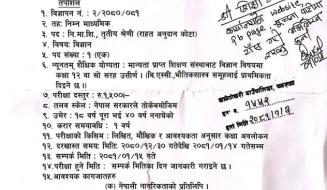 तपशिल
१. विज्ञापन नं. : २/२०८०/०८१
२. तह: निम्न माध्यमिक
३. पद : वि.मा.शि., तृतीय श्रेणी (राहत अनुदान कोटा)
४. विषय: विज्ञान
५. पद संख्या : १ (एक)
६. न्यूनतम् शैक्षिक योग्यता : मान्यता प्राप्त शिक्षण संस्थाबाट विज्ञान विषयमा
कक्षा १२ वा सो सरह उत्तीर्ण ।
दिइने छ ।)
७. परीक्षा दस्तुर : रु.१,५००/-
८. तलव स्केल : नेपाल सरकारले तोकेबमोजिम
९. उमेर : १८ वर्ष पूरा भई ४० वर्ष ननाघेको
१०. करार समयावधि : १ वर्ष
११. परीक्षाको किसिम : लिखित, मौखिक र आवश्यकता अनुसार कक्षा अवलोकन
१२. दरखास्त समय: मिति: २०८०/१२/३० गतेदेखि २०८१/०१/१४ गतेसम्म
१३. सम्पर्क मिति: २०८१/०१/१५ गते
१४. परीक्षा हुने मिति : सम्पर्क मितिका दिन जानकारी गराइने छ ।
१५. आवश्यक कागजातहरु
(क) नेपाली नागरिकताको प्रतिलिपि ।